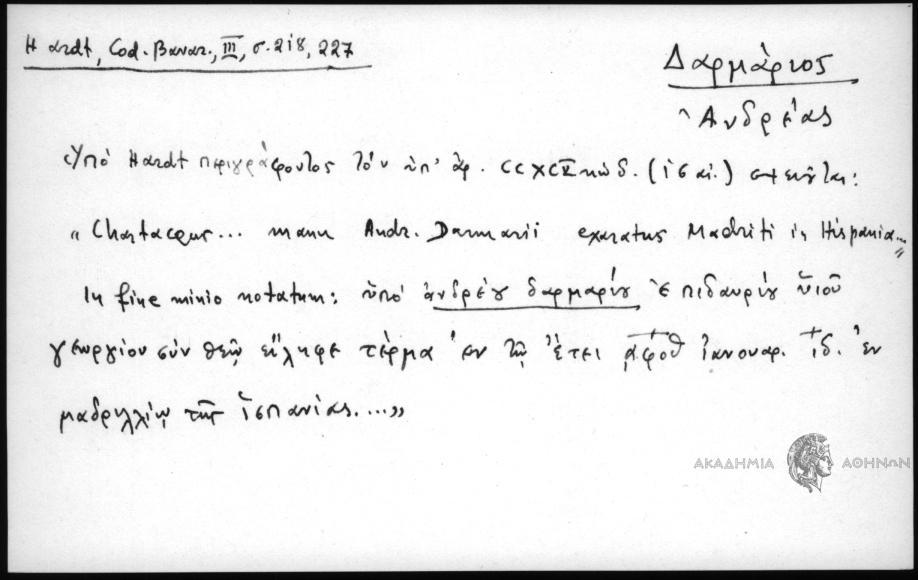 Hardt, Cod. Bavar., III, σ. 218, 227
Δαρμάριος
Ἀνδρέας
Ὑπό Hardt περιγράφοντος τόν ὑπ' ἀρ. CCXCV κώδ. (ις αἰ.) σημειοῦται:
"Chartaceus... manu Andr. Darmarii exaratus Madriti in Hispania..."
In fine minio notatum: ὑπό ἀνδρέου δαρμαρίου ἐπιδαυρίου υἱοῦ
γεωργίου σύν θεῷ εἴληφε τέρμα ἐν τῷ ἔτει ͵αφοθ ἰανουαρ. ιδ. ἐν
μαδρυλλίῳ τῆς ἱσπανίας....»
ΑΚΑΔΗΜΙΑ ΑΘΗΝΩΝ